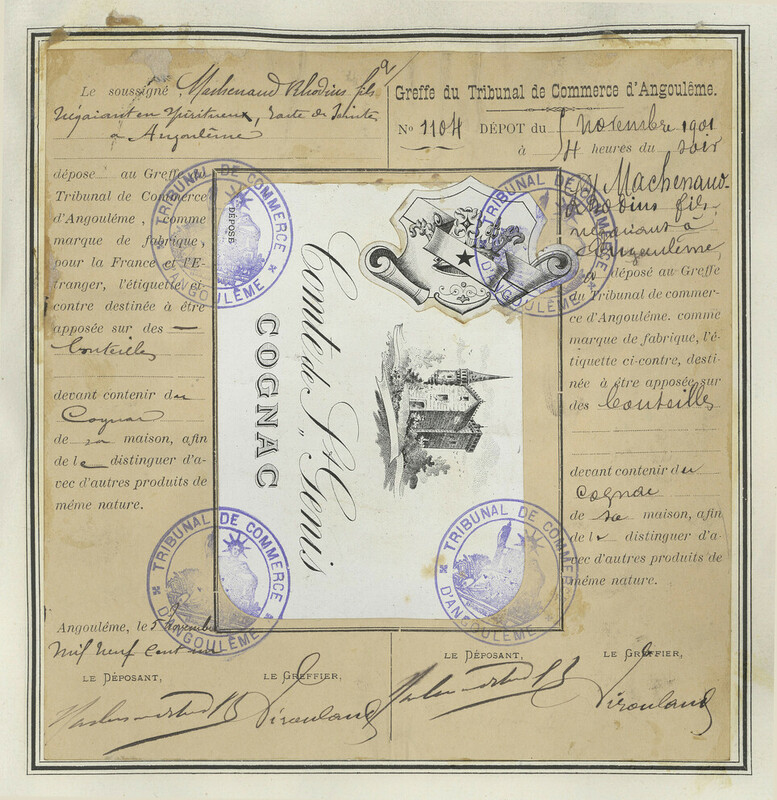 Le soussigné, Machenaud Rhodius fils
Négociant en Spiritueux, route de Saintes
à Angoulême
dépose au Greffe du
Tribunal de Commerce
d'Angoulême, comme
marque de fabrique,
pour la France et l'É-
tranger, l'étiquette ci-
contre destinée à être
apposée sur des
bouteilles
devant contenir du
Cognac
de sa maison, afin
de le distinguer d'a-
vec d'autres produits de
même nature.
Angoulême, le 5 Novembre
Mil neuf cent un
LE DÉPOSANT,
LE GREFFIER,
Greffe du Tribunal de Commerce d'Angoulême.
No 1104 DÉPOT du 5 Novembre 1901
à 4 heures du soir
Machenaud-
Rhodius fils,
négociant à
Angoulême,
a déposé au Greffe
du Tribunal de commer-
ce d'Angoulême. comme
marque de fabrique, l'é-
tiquette ci-contre, desti-
née à être apposée sur
des bouteilles
devant contenir du
Cognac
de sa maison, afin
de le distinguer d'a-
vec d'autres produits de
même nature.
LE DÉPOSANT,
LE GREFFIER,
DÉPOSÉ
Comte de St. Genis
COGNAC
TRIBUNAL DE COMMERCE
D'ANGOULÊME
TRIBUNAL DE COMMERCE
D'ANGOULÊME
TRIBUNAL DE COMMERCE
D'ANGOULÊME
TRIBUNAL DE COMMERCE
D'ANGOULÊME